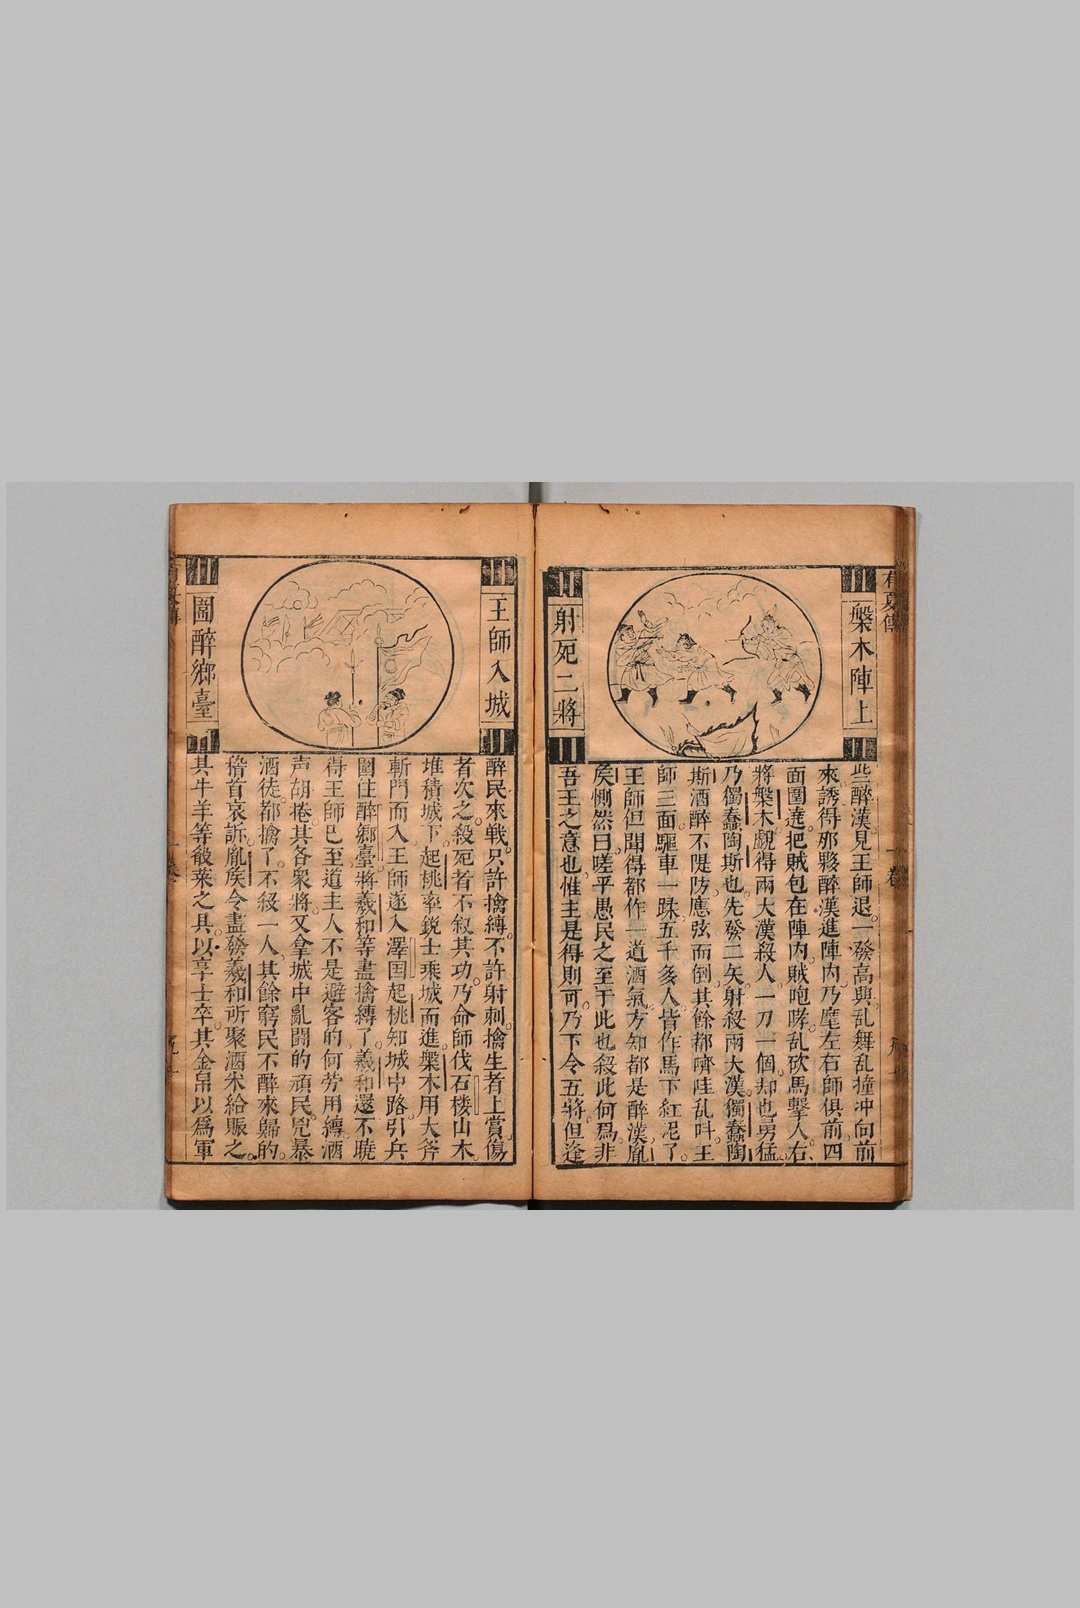 有夏傳
一卷
槃木陣上
射死二將
些醉漢見王師退一發高興乱舞乱撞冲向前
來誘得那夥醉漢進陣內乃麾左右師俱前四
面圍遶把賊包在陣內賊咆哮乱砍馬擊人右
將槃木覷得兩大漢殺人一刀一個却也勇猛
乃獨蠡陶斯也先發二矢射殺兩大漢獨蠡陶
斯酒醉不隄防應弦而倒其餘都嚌哇乱呌王
師三面驅車一跺五千多人皆作馬下紅泥了
王師但聞得都作一道酒氣方知都是醉漢胤
矦惻然曰嗟乎愚民之至于此也殺此何爲非
吾王之意也惟主是得則可乃下令五將但逢
王師入城
圖醉鄉臺
醉民來戰只許擒縛不許射刺擒生者上賞傷
者次之殺死者不敘其功乃命師伐石楼山木
堆積城下起桃率銳士乘城而進槃木用大斧
斬門而入王師遂入澤囯起桃知城中路引兵
圍住醉鄉臺將羲和等盡擒縛了羲和還不曉
得王師已至道主人不是避客的何勞用縛酒
声胡捲其各衆將又拿城中亂鬪的頑民兇暴
酒徒都擒了不殺一人其餘窮民不醉來歸的
稽首哀訴胤矦令盡發羲和所聚酒米給賑之
其牛羊等皷菜之具以享士卒其金帛以爲軍